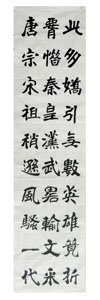 此多嬌引無數英雄競折
腰惜秦皇漢武略輸文采
唐宗宋祖稍遜風騷一代